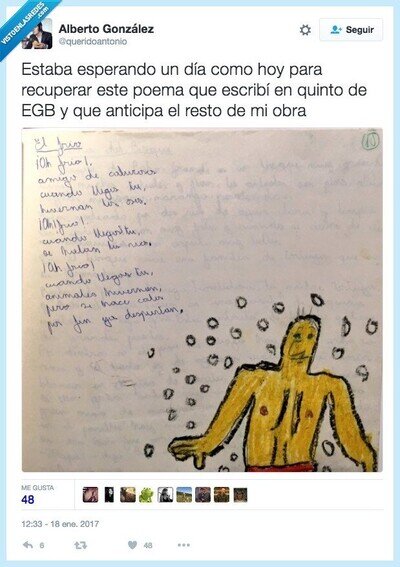 VISTOENLASREDES
.COM
Alberto González
@queridoantonio
Seguir
Estaba esperando un día como hoy para
recuperar este poema que escribí en quinto de
EGB y que anticipa el resto de mi obra
El frío
¡Oh frío!,
amigo de calurosos
cuando llegas tu,
hivernan los osos,
¡Oh frío!,
cuando llegas tu,
se hielan los ríos,
¡Oh frío!
cuando llegas tu,
animales hivernan,
pero se hace calor
por fin ya despiertan.
ME GUSTA
48
12:33 - 18 ene. 2017
6
48